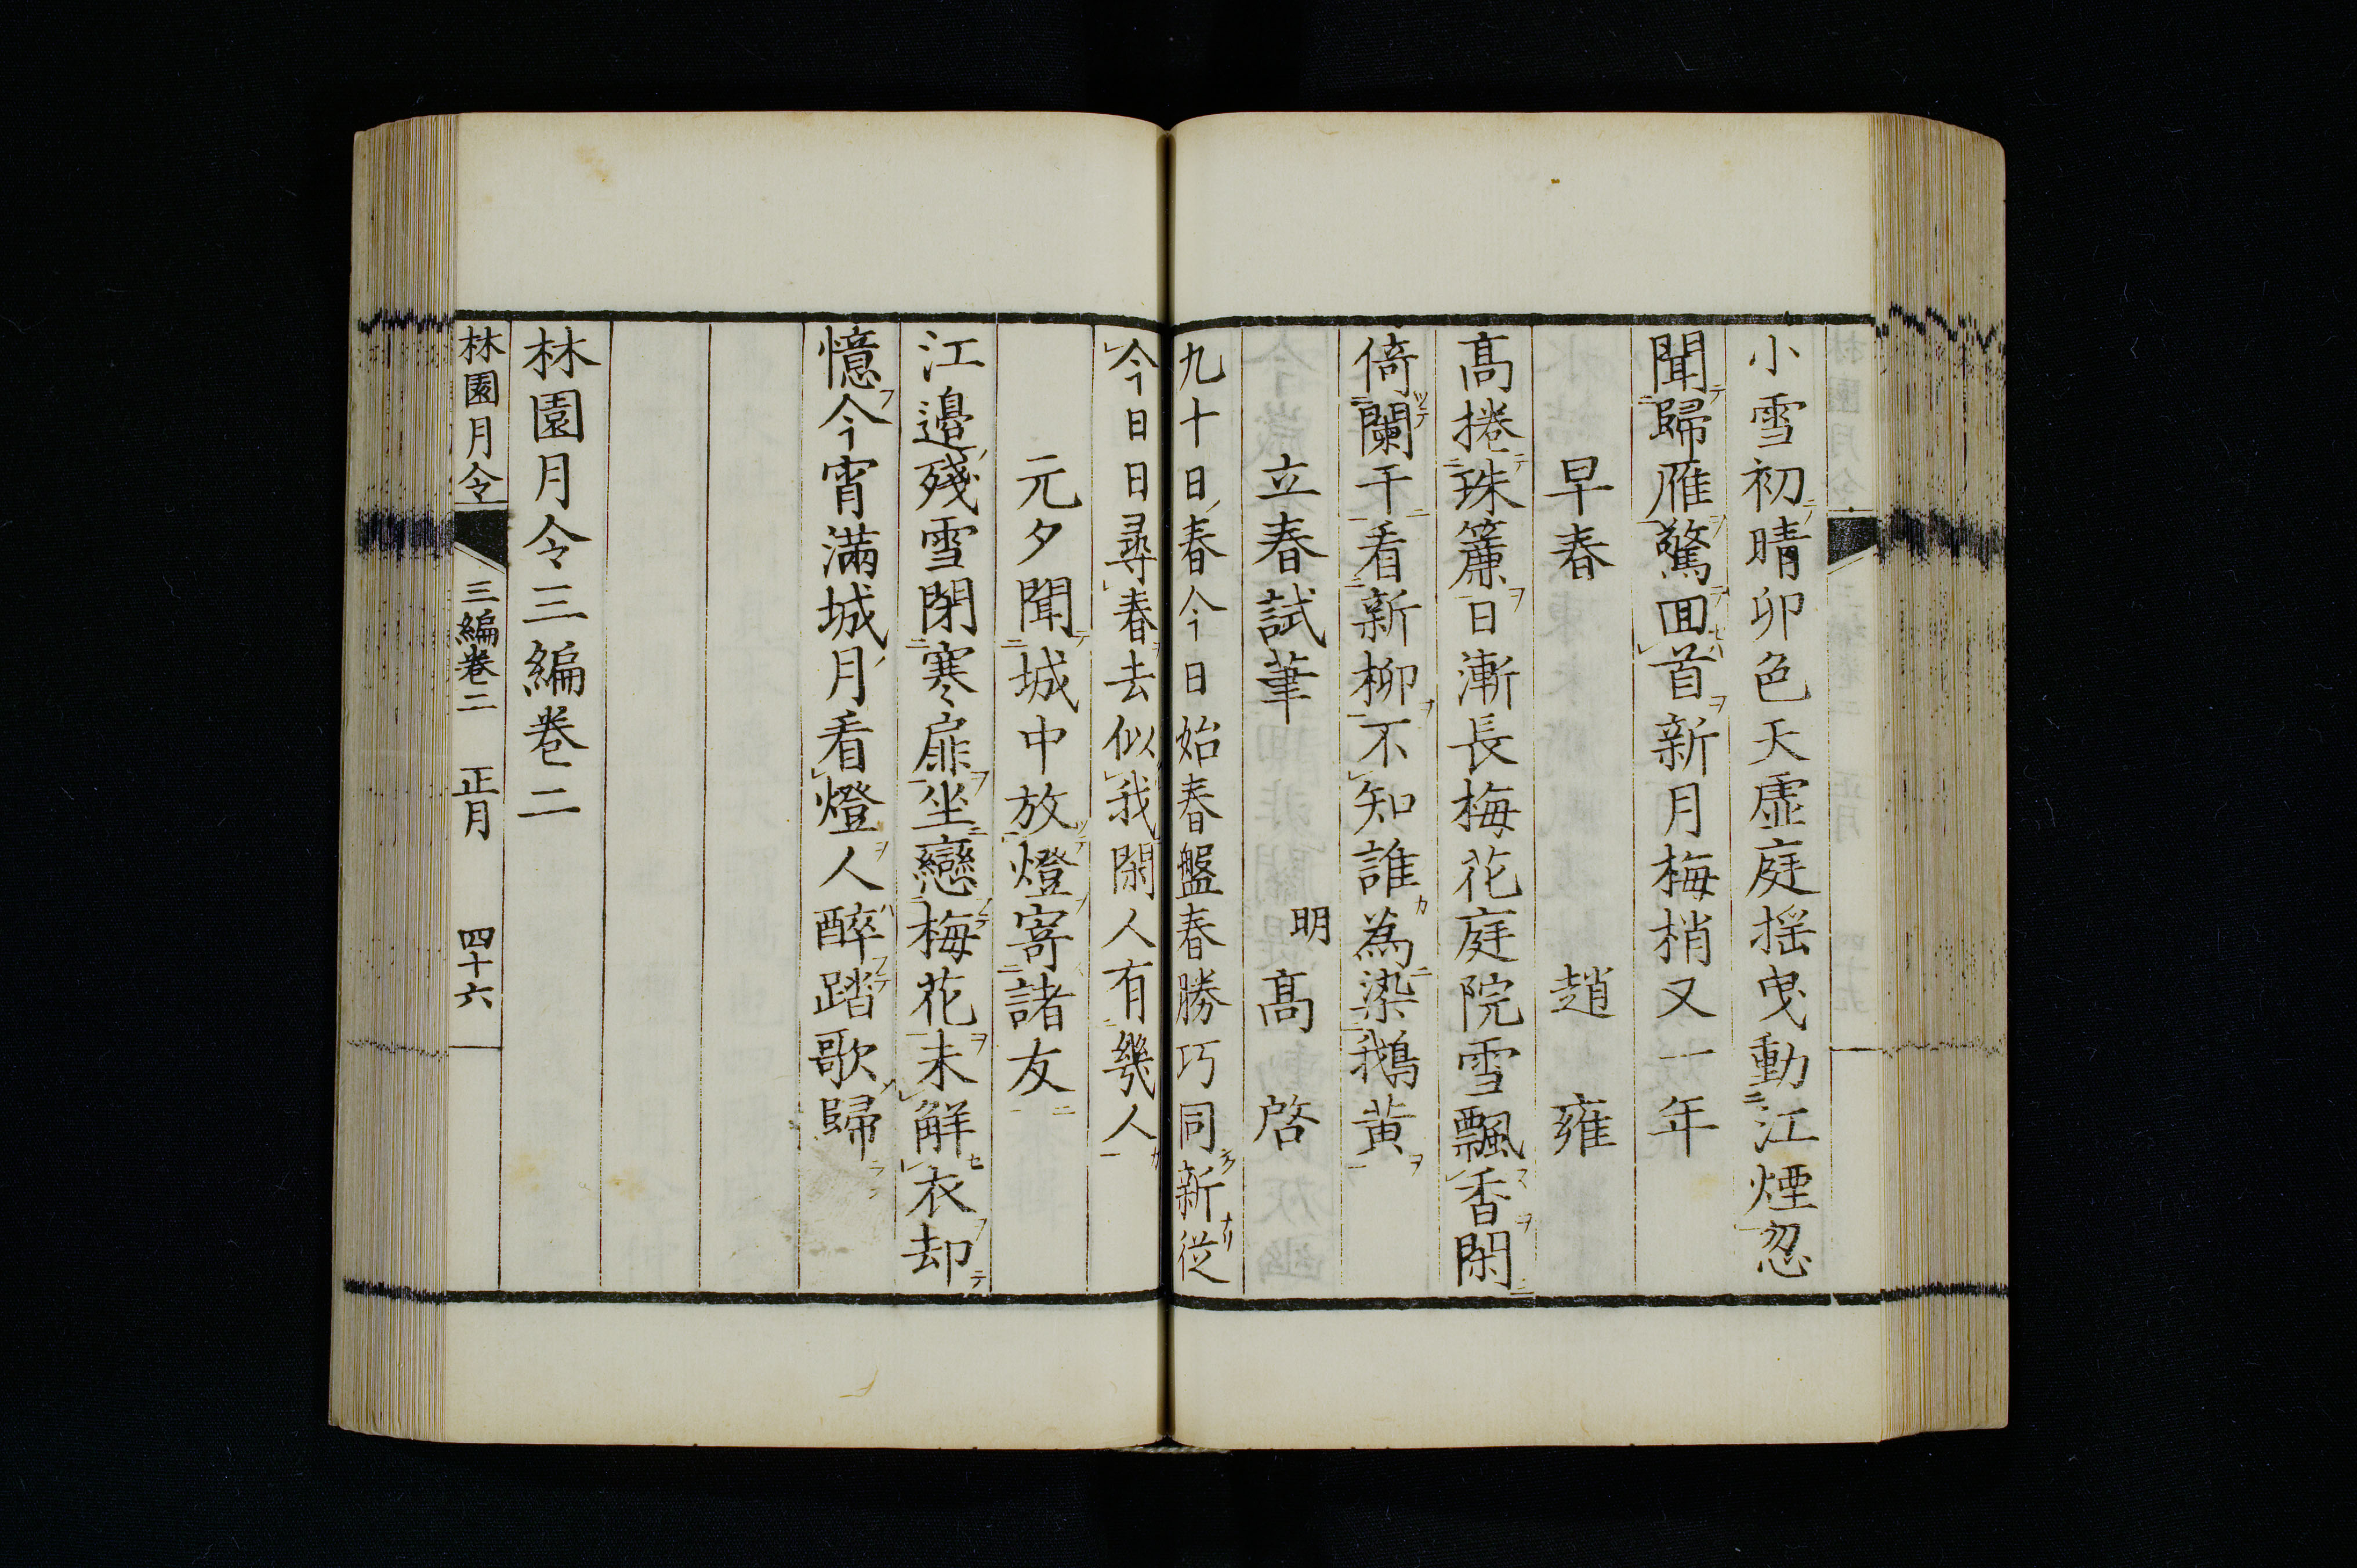 小雪初晴卯色天虛庭揺曳動江煙忽
聞歸雁驚囬首新月梅梢又一年
早春 趙雍
髙捲珠簾日漸長梅花庭院雪飄香閑
倚闌干看新柳不知誰為染鵝黃
立春試筆 明 髙啓
九十日春今日始春盤春勝巧同新従
今日日尋春去似我閑人有幾人
元夕聞城中放燈寄諸友
江邉殘雪閉寒扉坐戀梅花未觧衣却
憶今宵滿城月看燈人醉踏歌歸
林園月令三編巻二
林園月令 三編巻二 正月 四十六